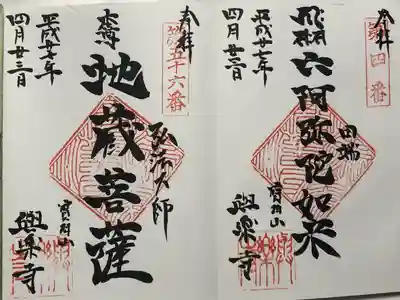 奉拝
第四番
六阿弥陀如来
田端
寳珠山
與楽寺
平成廿七年
四月廿三日
奉拝
第五十六番
本尊
地蔵菩薩
弘法大師
寳珠山
與楽寺
平成廿七年
四月廿三日